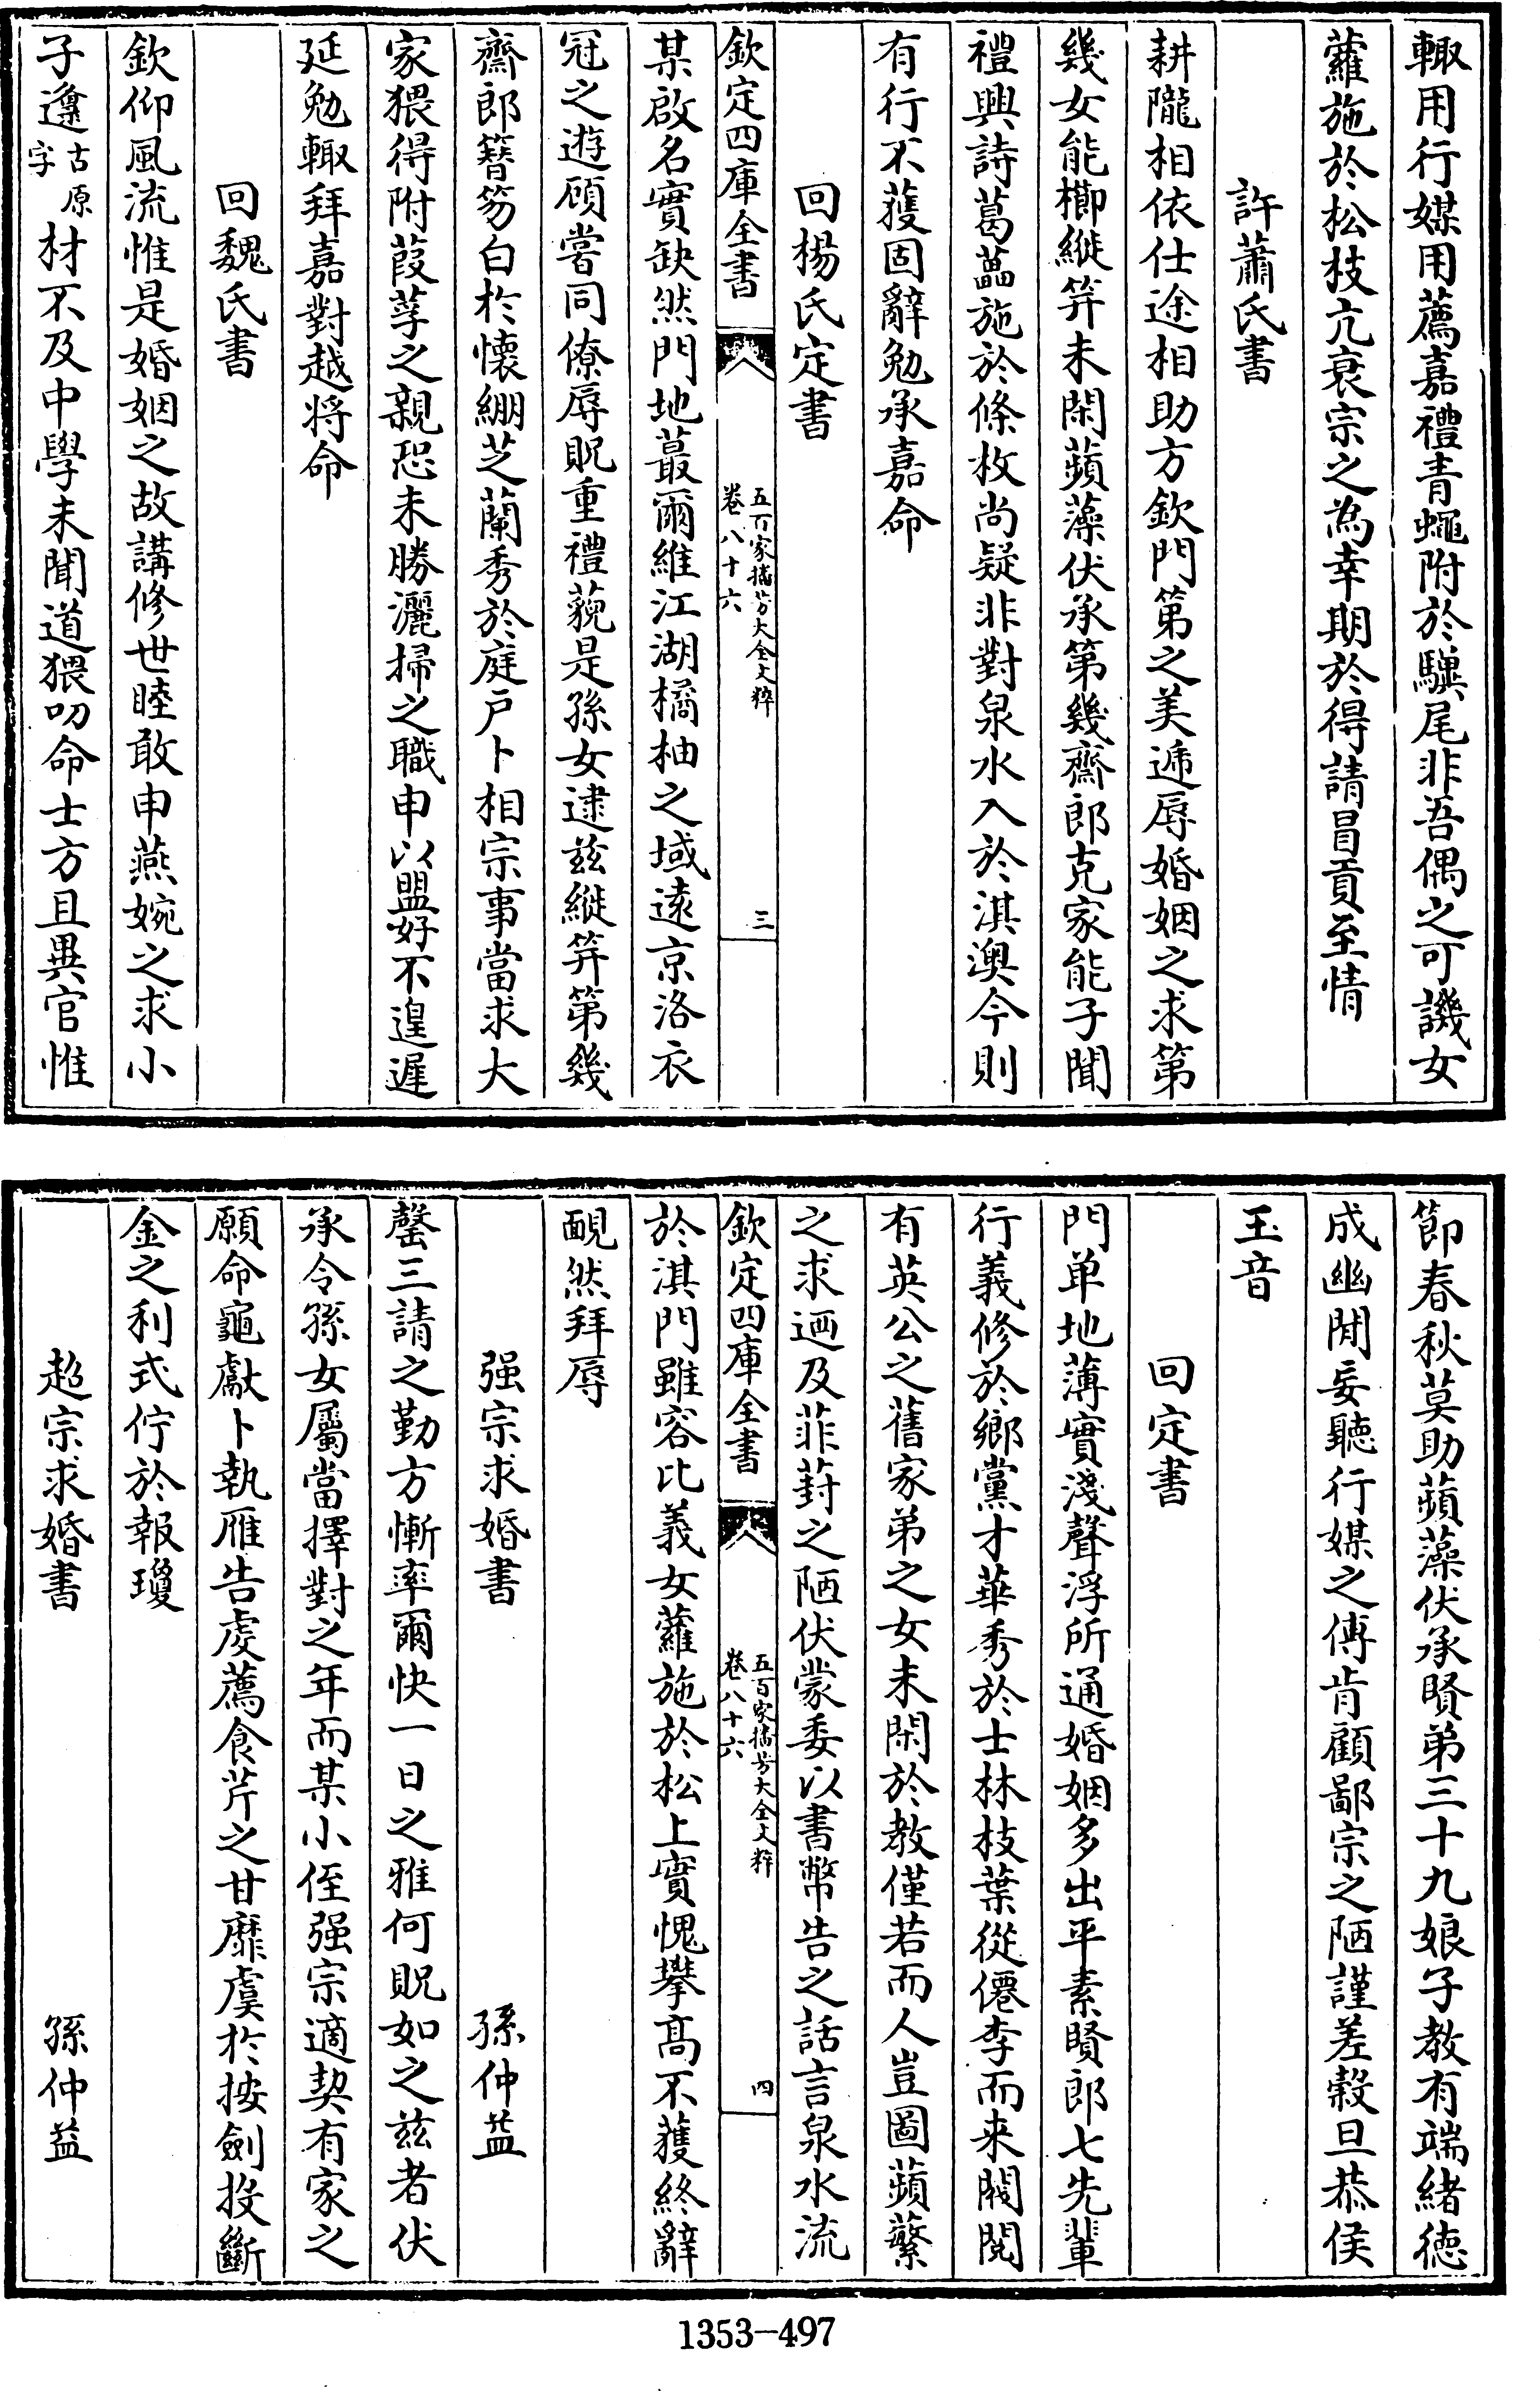 輙用行媒用薦嘉禮青蠅附於驥尾非吾偶之可譏女
蘿施於松枝亢衰宗之為幸期於得請冒貢至情
許蕭氏書
耕隴相依仕途相助方欽門第之美遞辱婚姻之求第
幾女能櫛縰筓未閑蘋藻伏承第幾齋郎克家能子聞
禮興詩葛藟施於條枚尚疑非對泉水入於淇澳今則
有行不獲固辭勉承嘉命
回楊氏定書
欽定四庫全書
五百家播芳大全文粹
卷八十六
三
某啟名實缺然門地蕞爾維江湖橘柚之域逺京洛衣
冠之遊顧嘗同僚辱貺重禮藐是孫女逮兹縰筓第幾
齋郎簪笏白於懐綳芝蘭秀於庭戶卜相宗事當求大
家猥得附葭莩之親恐未勝灑掃之職申以盟好不遑遲
延勉輙拜嘉對越将命
回魏氏書
欽仰風流惟是婚姻之故講修世睦敢申燕婉之求小
子邍
古原
字
材不及中學未聞道猥叨命士方且異官惟
節春秋莫助蘋藻伏承賢弟三十九娘子教有端緒德
成幽閒妄聽行媒之傅肯顧鄙宗之陋謹差榖旦恭俟
玉音
回定書
門单地薄實淺聲浮所通婚姻多出平素賢郎七先輩
行義修於鄉黨才華秀於士林枝葉從僊李而来閥閱
有英公之舊家弟之女未閑於教僅若而人豈圖蘋蘩
之求迺及菲葑之陋伏蒙委以書幣告之話言泉水流
欽定四庫全書
五百家播芳大全文粹
卷八十六
四
於淇門雖容比義女蘿施於松上實愧攀髙不獲終辭
靦然拜辱
强宗求婚書
孫仲益
罄三請之勤方慚率爾快一日之雅何貺如之兹者伏
承令孫女屬當擇對之年而某小侄强宗適契有家之
願命龜獻卜執雁告䖍薦食芹之甘靡虞於按劍投斷
金之利式佇於報瓊
超宗求婚書
孫仲益
1353-497